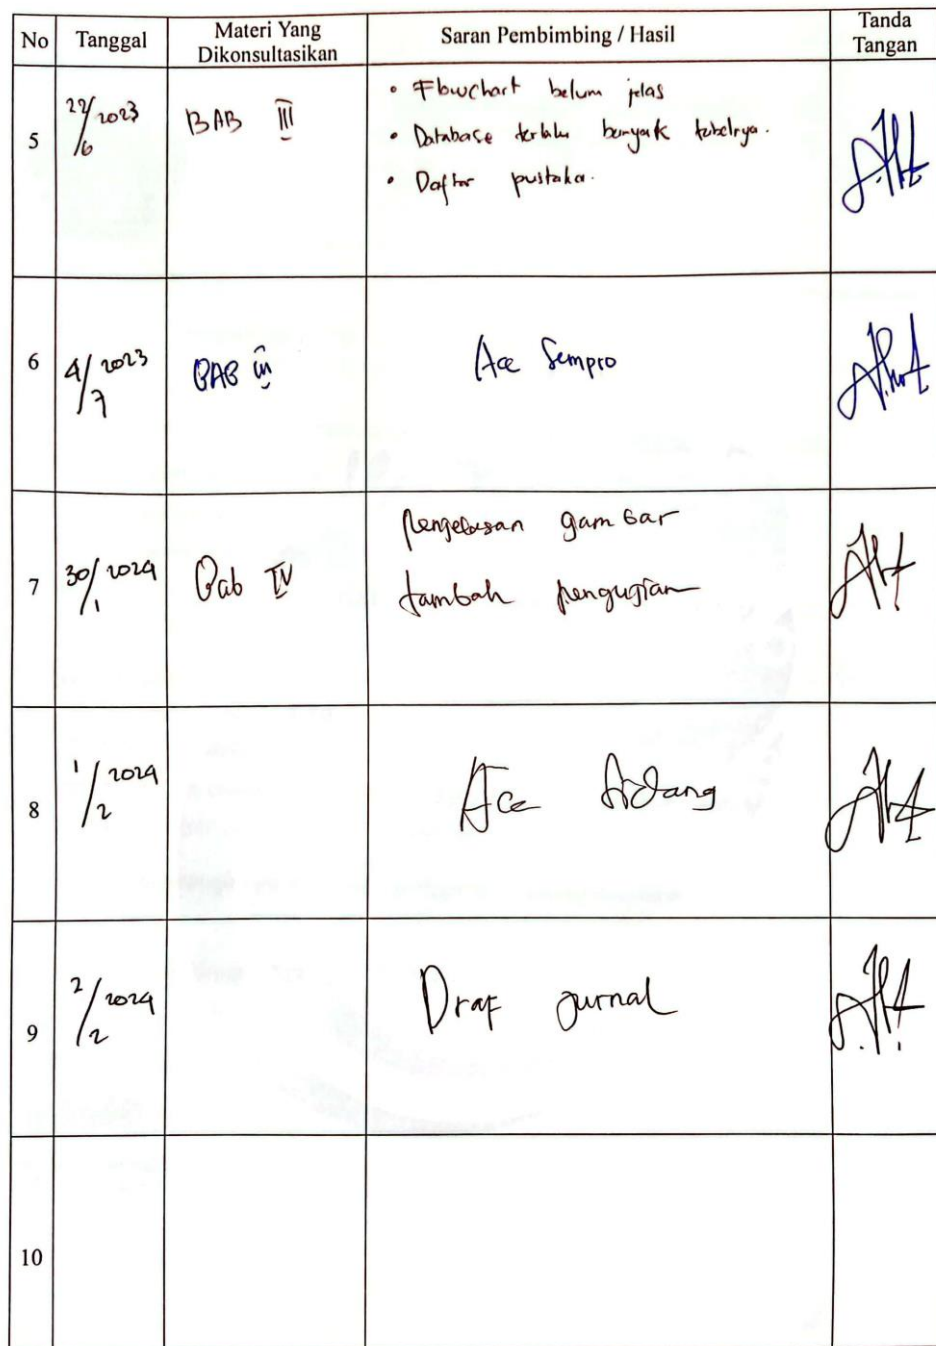 No Tanggal Materi Yang Dikonsultasikan Saran Pembimbing / Hasil Tanda Tangan
5 22/6 2023 BAB III • Flowchart belum jelas
• Database terlalu banyak tabelnya.
• Daftar pustaka.
6 4/7 2023 BAB III Acc Sempro
7 30/1 2024 Bab IV Penjelasan gambar
tambah pengujian
8 1/2 2024 Acc Sidang
9 2/2 2024 Draf jurnal
10